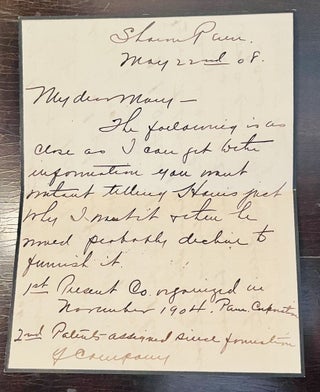 Sharon Penn.
May 22nd 08.
My dear Mary —
The following is as
close as I can get to the
information you want
without telling Harris just
why I want it & then he
would probably decline to
furnish it.
1st Present Co. organized in
November 1904. Penn. Corporation
2nd Patents assigned since formation
of Company